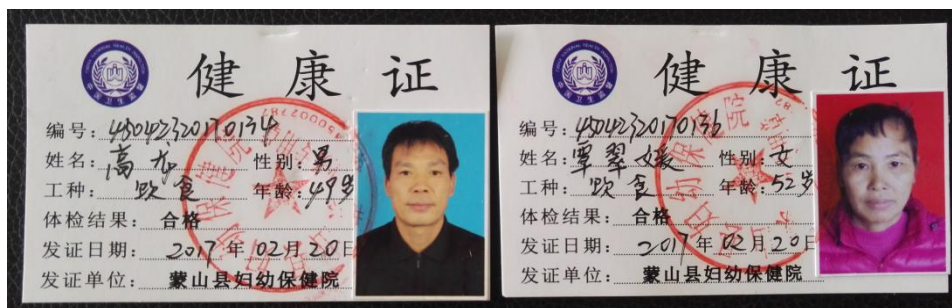 健康证
编号：45042320170134
姓名：高龙 性别：男
工种：饮食 年龄：49岁
体检结果：合格
发证日期：2017年02月20日
发证单位：蒙山县妇幼保健院
健康证
编号：45042320170136
姓名：覃翠媛 性别：女
工种：饮食 年龄：52岁
体检结果：合格
发证日期：2017年02月20日
发证单位：蒙山县妇幼保健院
中国卫生监督
中国卫生监督